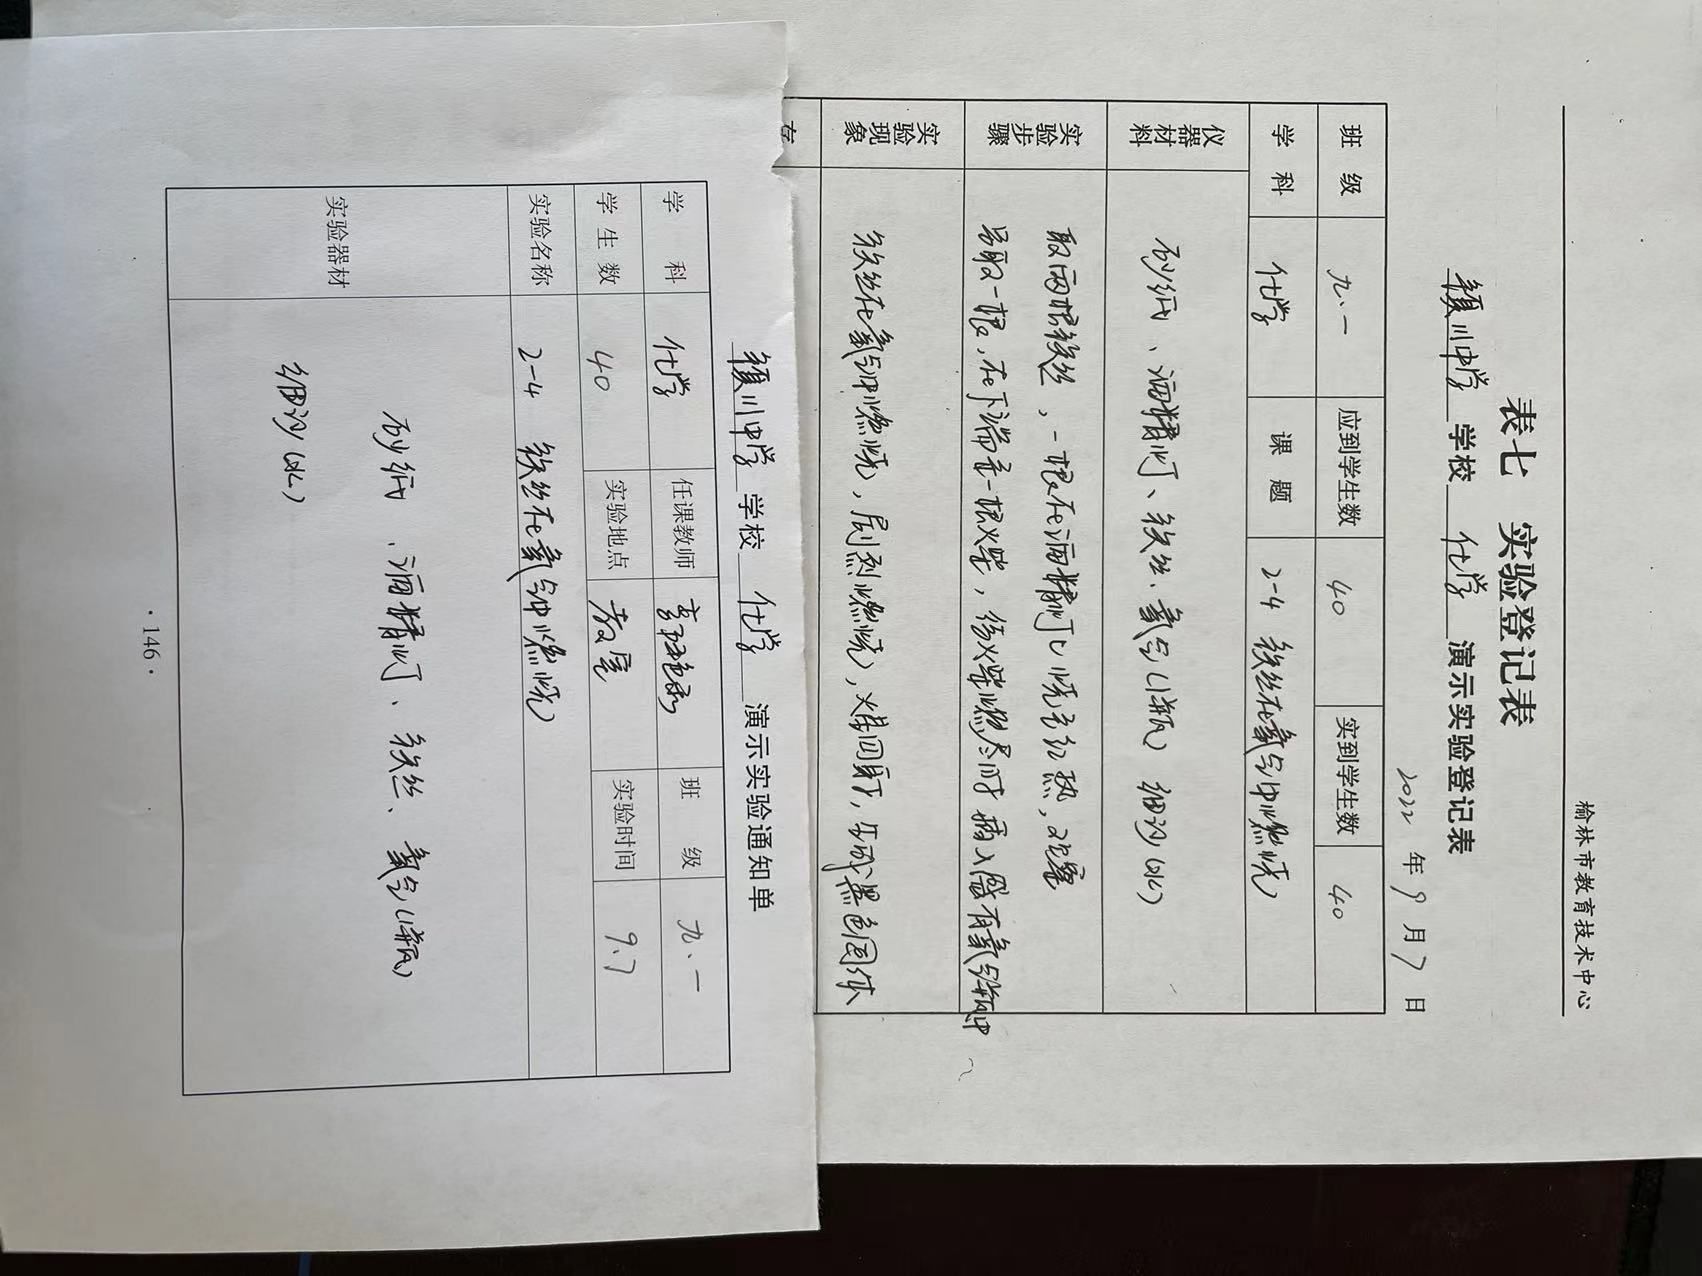 榆林市教育技术中心
表七 实验登记表
镇川中学 学校 化学 演示实验登记表
2022 年 9 月 7 日
班 级 九.一 应到学生数 40 实到学生数 40
学 科 化学 课 题 2-4 铁丝在氧气中燃烧
仪器材料 砂纸、酒精灯、铁丝、氧气(1瓶) 细沙(水)
实验步骤 取两根铁丝,一根在酒精灯上烧至红热,观察
另取一根,在下端系一根火柴,待火柴燃尽时插入盛有氧气瓶中
实验现象 铁丝在氧气中燃烧,剧烈燃烧,火星四射,生成黑色固体
存
镇川中学 学校 化学 演示实验通知单
学 科 化学 任课教师 班 级 九.一
学生数 40 实验地点 教室 实验时间 9.7
实验名称 2-4 铁丝在氧气中燃烧
实验器材 砂纸、酒精灯、铁丝、氧气(1瓶)
细沙(水)
·146·